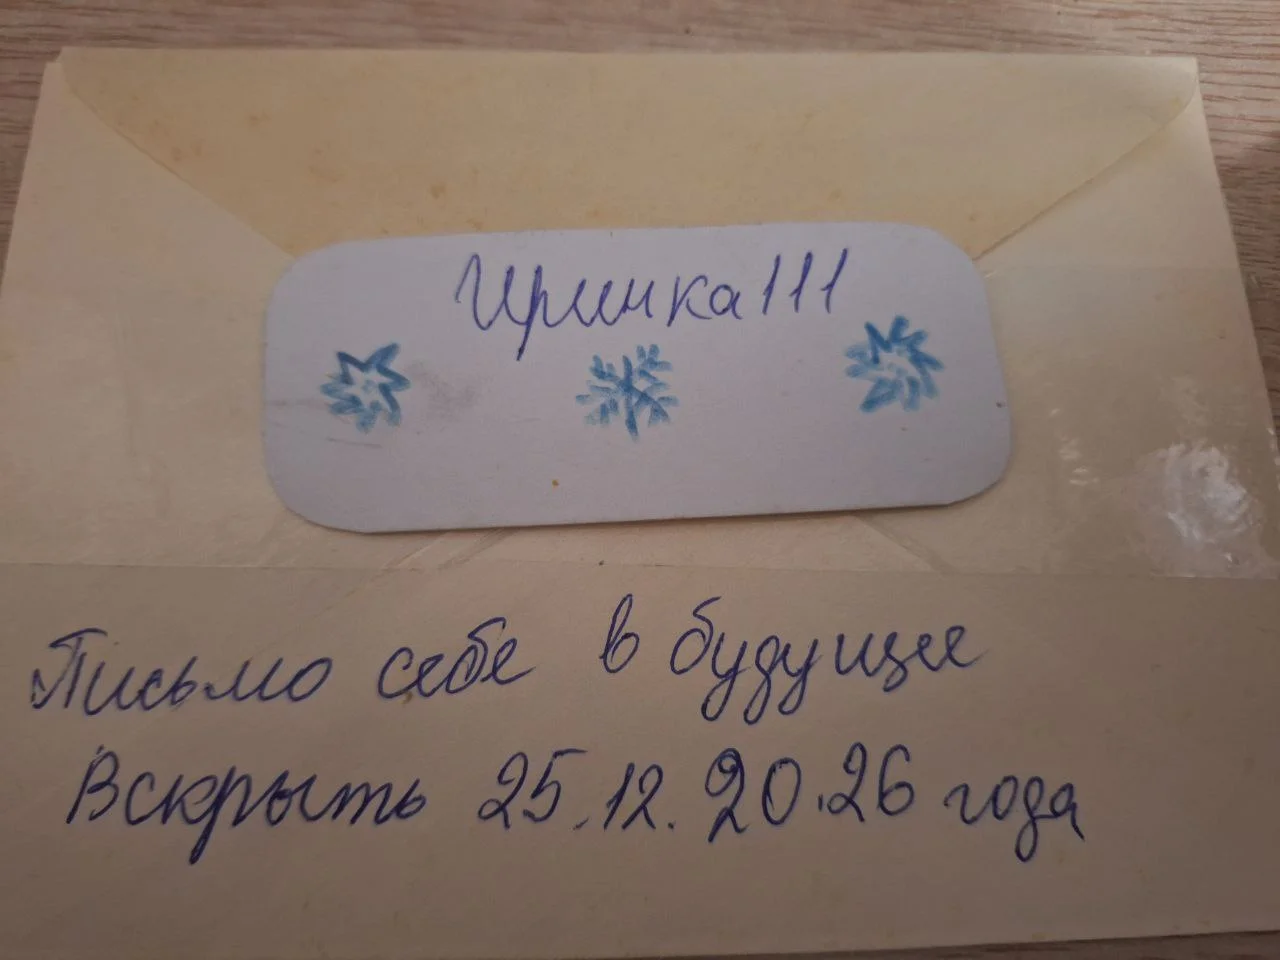 Иринка111
Письмо себе в будущее
Вскрыть 25.12.20.26 года